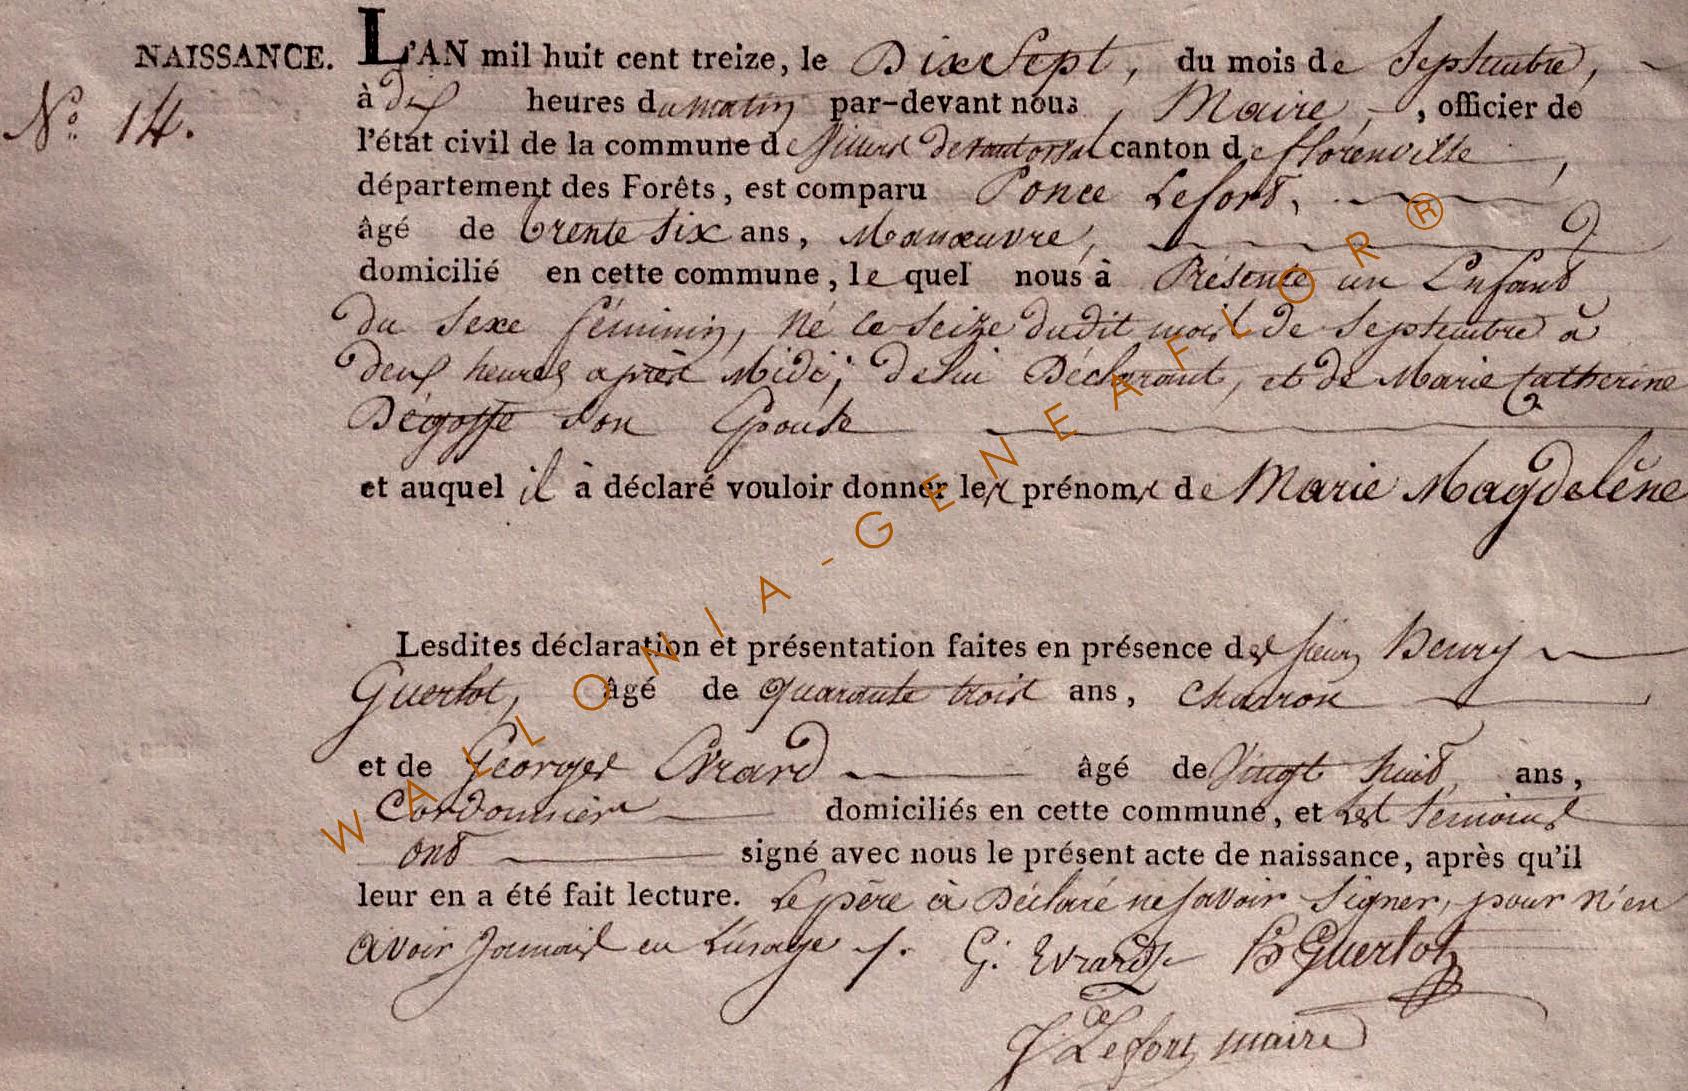 NAISSANCE. L'AN mil huit cent treize, le Dix Sept, du mois de Septembre,
N.o 14. à dix heures du matin par-devant nous, Maire, officier de
l'état civil de la commune de Villers devant orval canton de florenville,
département des Forêts, est comparu Ponce Lefort,
âgé de trente six ans, Manœuvre,
domicilié en cette commune, le quel nous à Présenté un Enfant
du sexe féminin, Né le seize dudit mois de Septembre à
deux heures après Midi; de lui Déclarant, et de Marie Catherine
Dégoffe son Epouse
et auquel il à déclaré vouloir donner les prénoms de Marie Magdelène
Lesdites déclaration et présentation faites en présence des sieurs Henry
Guerlot, âgé de quarante trois ans, charron
et de Georges Evrard âgé de Vingt huit ans,
Cordonnier domiciliés en cette commune, et Les témoins
ont signé avec nous le présent acte de naissance, après qu'il
leur en a été fait lecture. Le père à Déclaré ne savoir signer, pour n'en
avoir Jamais eu L'usage ./. G: Evrard H Guerlot
J Lefort maire
WALLONIA-GENEAFLOR®